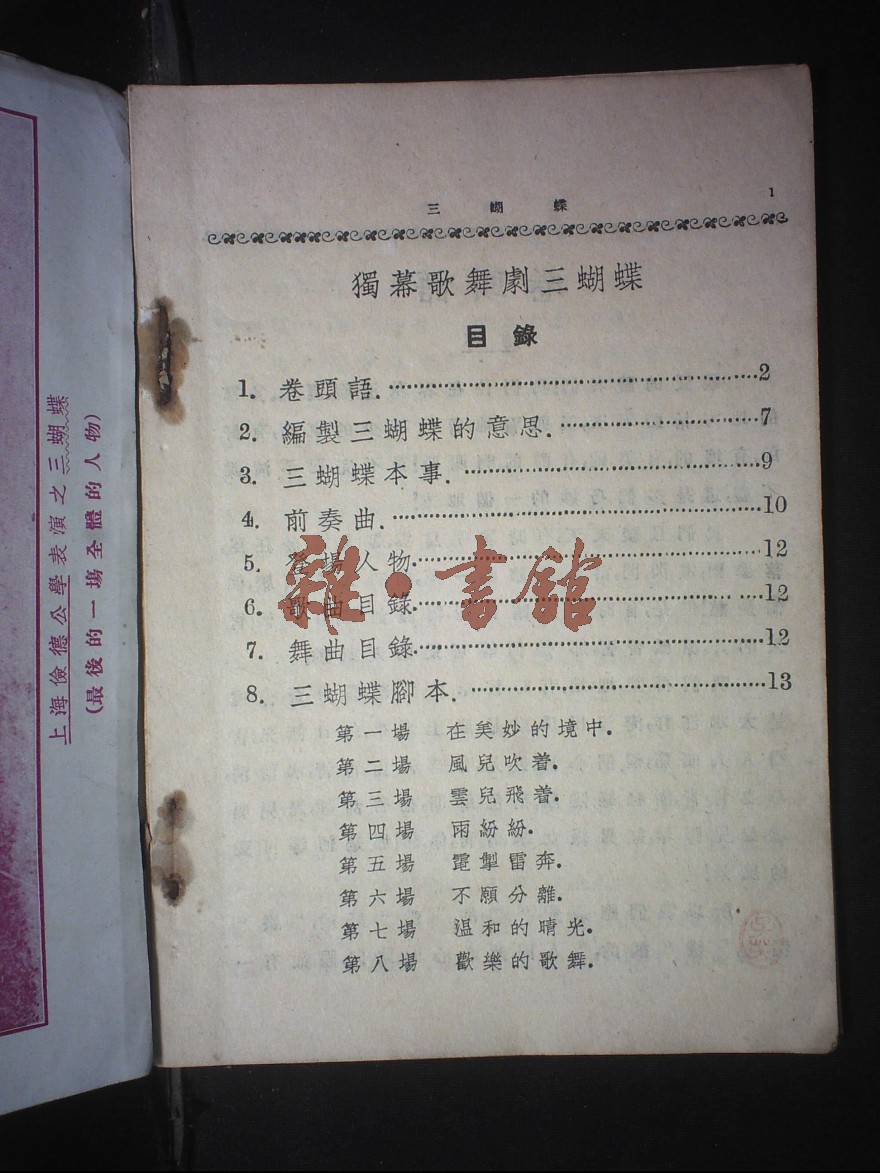 三蝴蝶 1
獨幕歌舞劇三蝴蝶
目錄
1. 卷頭語.…………2
2. 編製三蝴蝶的意思.…………7
3. 三蝴蝶本事.…………9
4. 前奏曲.…………10
5. 登場人物…………12
6. 歌曲目錄…………12
7. 舞曲目錄…………12
8. 三蝴蝶腳本.…………13
第一場 在美妙的境中.
第二場 風兒吹着.
第三場 雲兒飛着.
第四場 雨紛紛.
第五場 電掣雷奔.
第六場 不願分離.
第七場 温和的晴光.
第八場 歡樂的歌舞.
上海儉德公學表演之三蝴蝶
(最後的一場全體的人物)
雜·書館